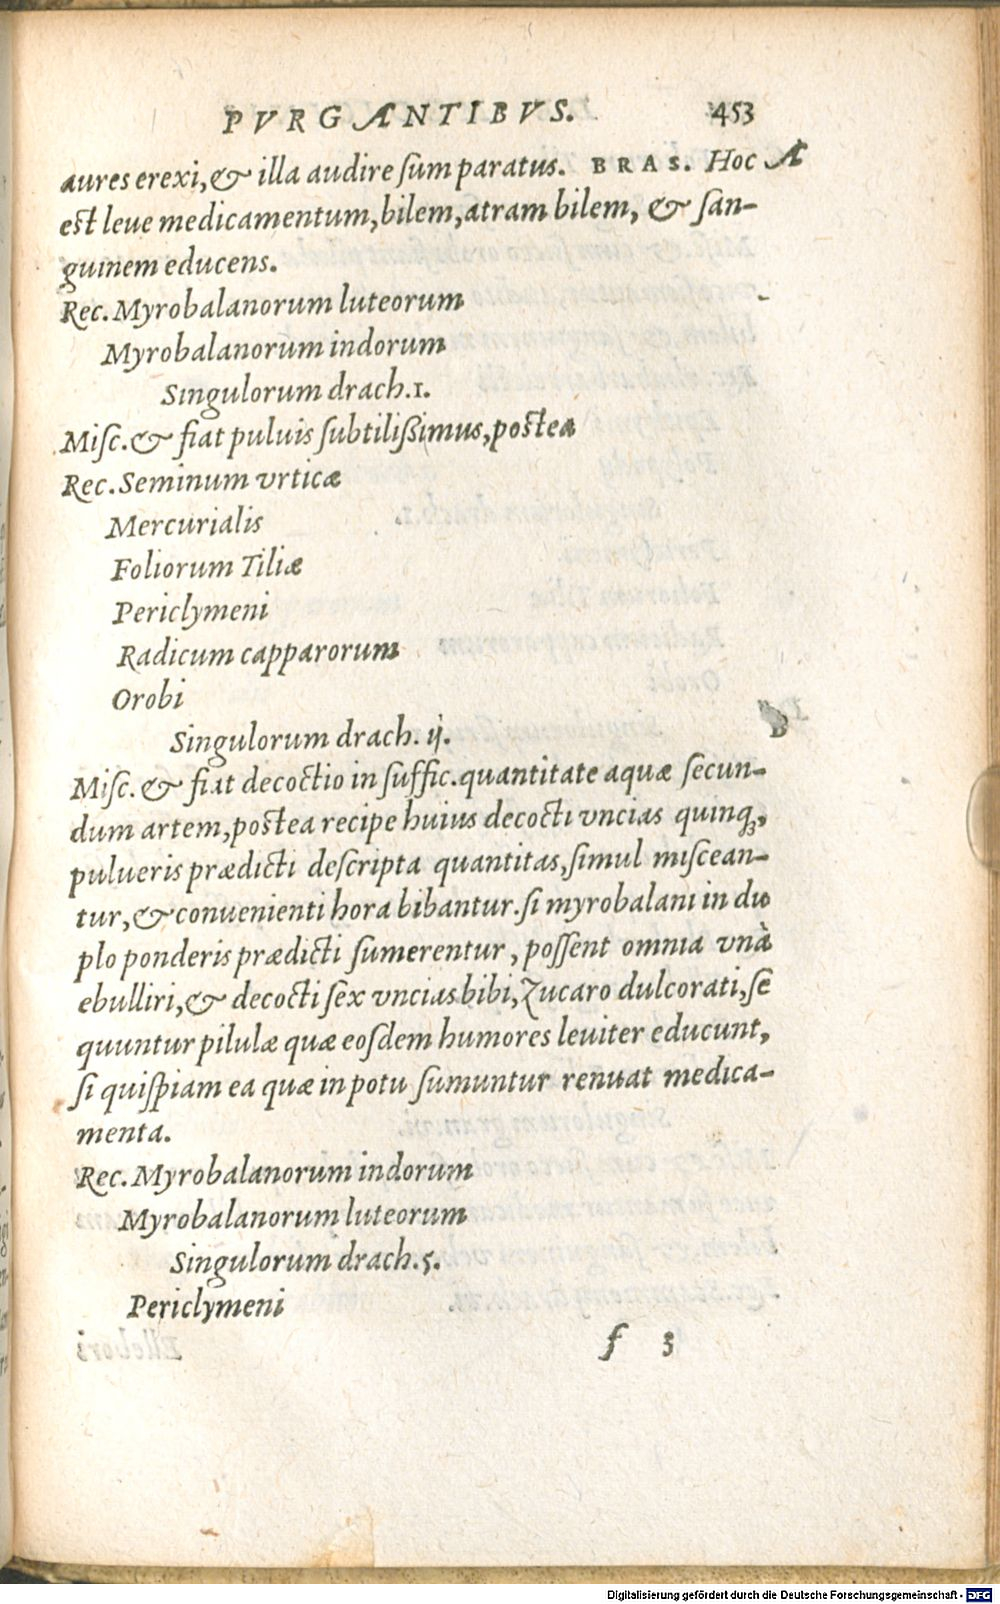 PVRGANTIBVS. 453
aures erexi, & illa audire ſum paratus. BRAS. Hoc A
est leue medicamentum, bilem, atram bilem, & ſan-
guinem educens.
Rec. Myrobalanorum luteorum
Myrobalanorum indorum
Singulorum drach. 1.
Miſc. & fiat puluis ſubtiliſsimus, postea
Rec. Seminum vrticæ
Mercurialis
Foliorum Tiliæ
Periclymeni
Radicum capparorum
Orobi
Singulorum drach. ij.
B
Miſc. & fiat decoctio in ſuffic. quantitate aquæ ſecun-
dum artem, postea recipe huius decocti vncias quinq;,
pulueris prædicti deſcripta quantitas, ſimul miſcean-
tur, & conuenienti hora bibantur. ſi myrobalani in du
plo ponderis prædicti ſumerentur, poſſent omnia vnà
ebulliri, & decocti ſex vncias bibi, Zucaro dulcorati, ſe
quuntur pilulæ quæ eoſdem humores leuiter educunt,
ſi quiſpiam ea quæ in potu ſumuntur renuat medica-
menta.
Rec. Myrobalanorum indorum
Myrobalanorum luteorum
Singulorum drach. 5.
Periclymeni
f 3
Digitalisierung gefördert durch die Deutsche Forschungsgemeinschaft - DFG